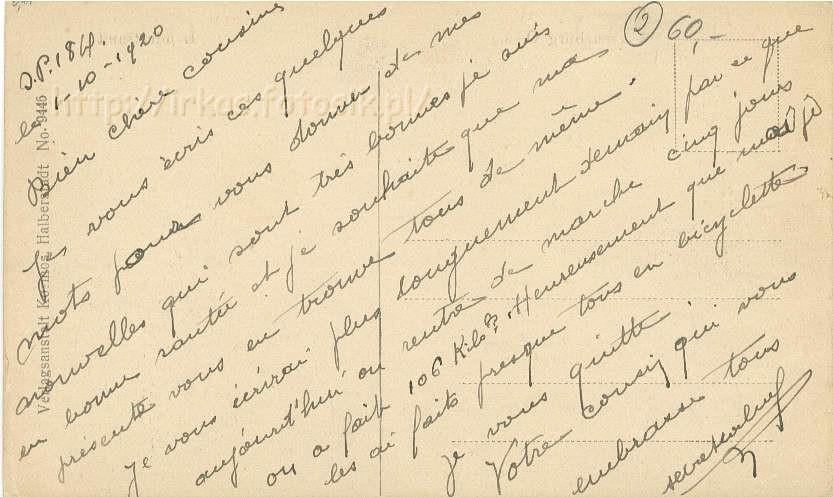 S.P. 184.
le 1-10-1920
Bien chère cousine
Je vous écris ces quelques
mots pour vous donner de mes
nouvelles qui sont très bonnes je suis
en bonne santée et je souhaite que ma
présente vous en trouve tous de même.
Je vous écrirai plus longuement demain par ce que
aujourd'hui on rentre de marche cinq jours
on a fait 106 Kilo. Heureusement que moi je
les ai faits presque tous en bicyclette
je vous quitte.
Votre cousin qui vous
embrasse tous
2
60,-
Verlagsanstalt Kosmos, Halberstadt No. 9446
http://irkas.fotosik.pl/